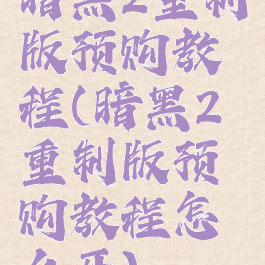 暗黑2重制
版预购教
程(暗黑2
重制版预
购教程怎
么弄)